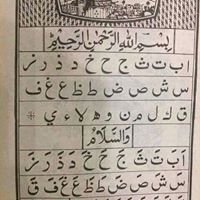 بِسْمِ اللهِ الرَّحْمٰنِ الرَّحِيْمِ
ا ب ت ث ج ح خ د ذ ر ز
س ش ص ض ط ظ ع غ ف
ق ك ل م ن و ه لا ء ي
وَالسَّلَامُ
اَ بَ تَ ثَ جَ حَ خَ دَ ذَ رَ زَ
سَ شَ صَ ضَ طَ ظَ عَ غَ فَ قَ